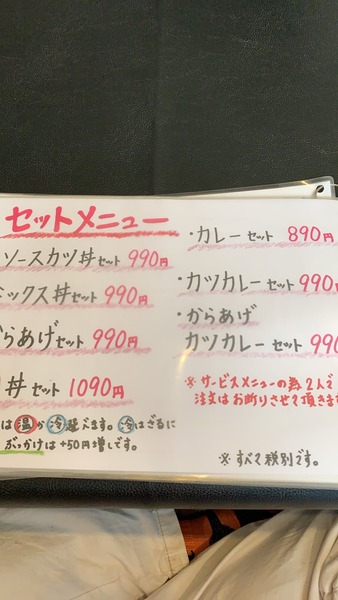 セットメニュー
ソースカツ丼セット 990円
ミックス丼セット 990円
からあげセット 990円
丼セット 1090円
は温か冷選えます。冷はざるに
ぶっかけは+50円増しです。
・カレーセット 890円
・カツカレーセット 990円
・からあげ
カツカレーセット 990
※サービスメニューの為2人で
注文はお断りさせて頂きます
※すべて税別です。